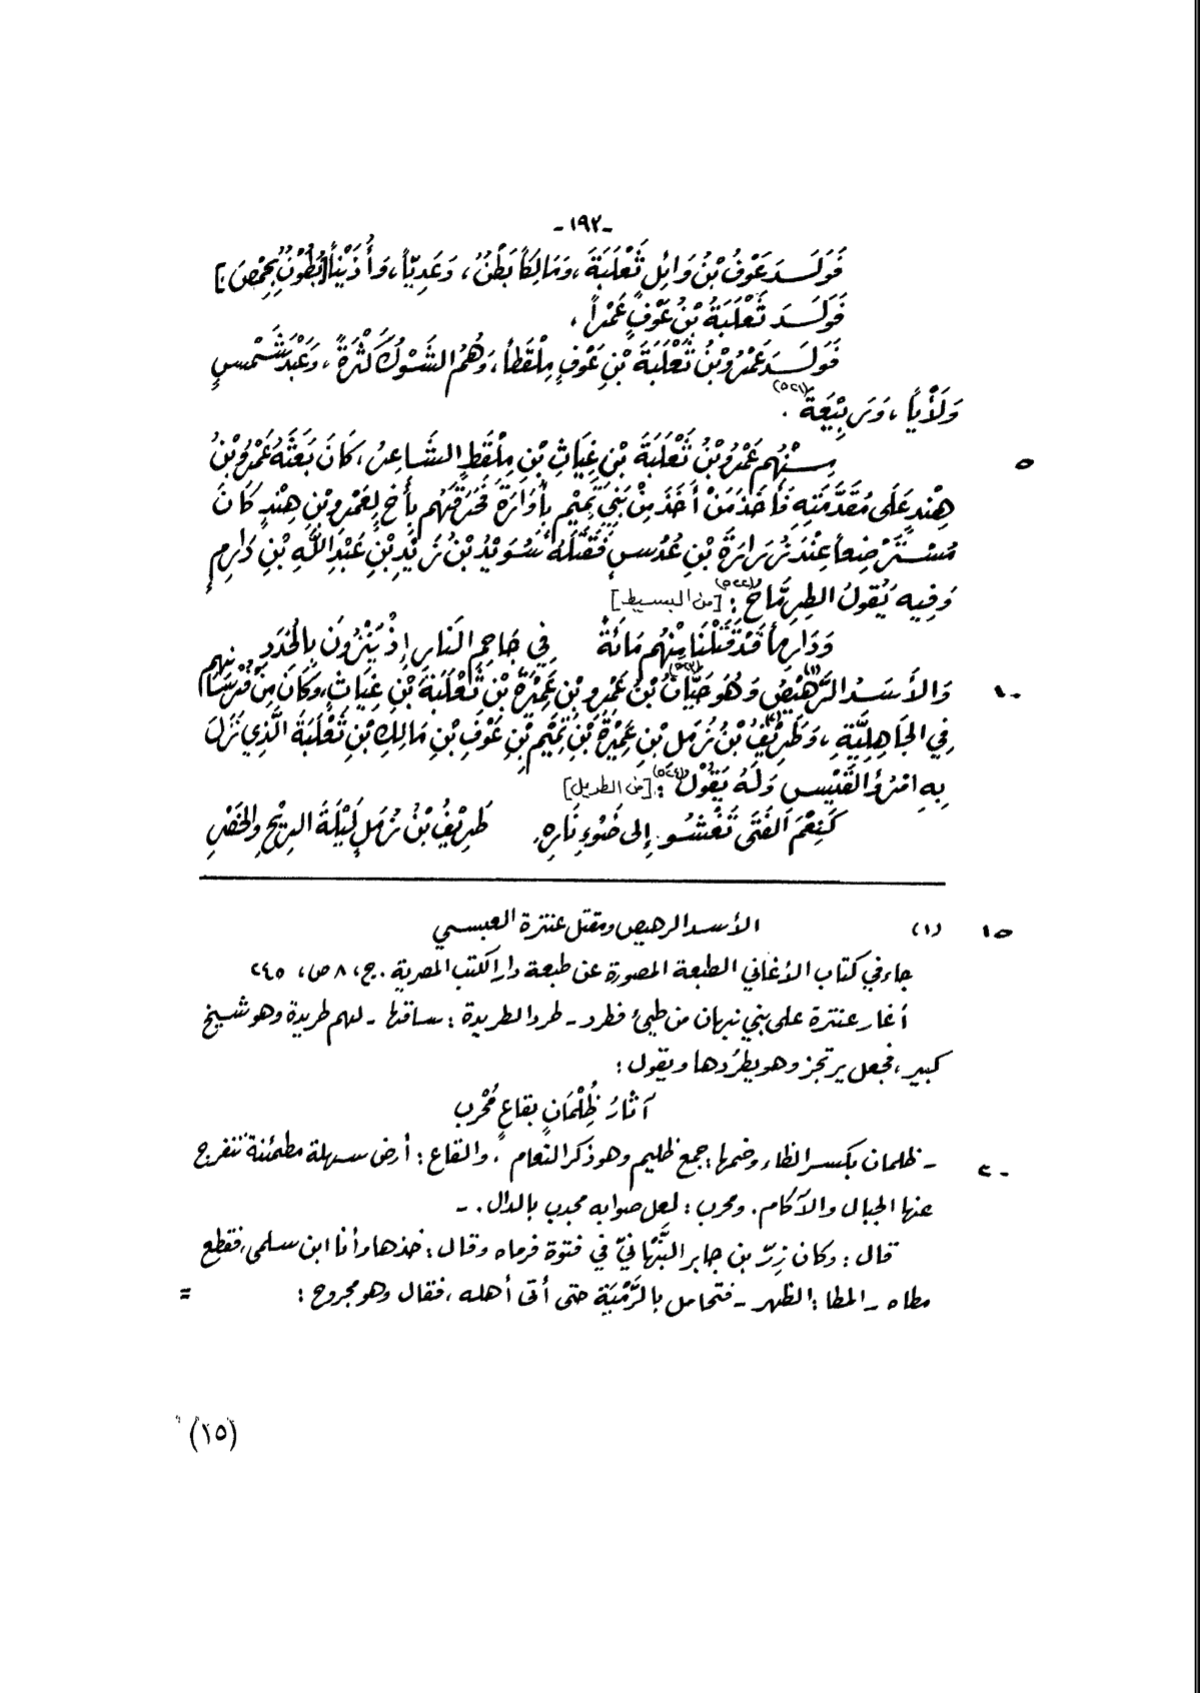 -١٩٢-
فَوَلَدَ عَوْفُ بْنُ وَائِلٍ ثَعْلَبَةَ، وَمَالِكاً بَطْنٌ، وَعَدِيّاً، وَأُذَيْناً [بُطُونٌ بِحِمْصَ]
فَوَلَدَ ثَعْلَبَةُ بْنُ عَوْفٍ عَمْراً،
فَوَلَدَ عَمْرُو بْنُ ثَعْلَبَةَ بْنِ عَوْفٍ مِلْقَطاً، وَهُمُ الشَّوْكُ كَثْرَةً، وَعَبْدَ شَمْسٍ
وَلَأْياً، وَرَبِيْعَةَ (٥٢١).
٥ مِنْهُم عَمْرُو بْنُ ثَعْلَبَةَ بْنِ غِيَاثِ بْنِ مِلْقَطٍ الشَّاعِرُ، كَانَ بَعَثَهُ عَمْرُو بْنُ
هِنْدٍ عَلَى مُقَدَّمَتِهِ فَأَخَذَ مَنْ أَخَذَ مِنْ بَنِي تَمِيْمٍ بِأُوَارَةَ فَحَرَقَهُم بِأَخٍ لِعَمْرِو بْنِ هِنْدٍ كَانَ
مُسْتَرْضِعاً عِنْدَ زُرَارَةَ بْنِ عُدُسٍ فَقَتَلَهُ سُوَيْدُ بْنُ زَيْدِ بْنِ عَبْدِ اللَّهِ بْنِ دَارِمٍ
وَفِيهِ يَقُولُ الطِرِمَّاحُ (٥٢٢): [من البسيط]
وَدَارِمٌ قَدْ قَتَلْنَا مِنْهُم مَائَةً فِي جَاحِمِ النَارِ إِذْ يَنْزُونَ بِالْخُدَدِ
١٠ وَالأَسَدُ الرَّهِيْصُ (١) وَهُوَ حَيَّانُ (٥٢٣) بْنُ عَمْرِو بْنِ عَمِيْرَةَ بْنِ ثَعْلَبَةَ بْنِ غِيَاثٍ، وَكَانَ مِنْ فُرْسَانِهِم
فِي الجَاهِلِيَّةِ، وَطَرِيْفُ بْنُ زُمَلِ بْنِ عَمِيْرَةَ بْنِ تَمِيْمِ بْنِ عَوْفِ بْنِ مَالِكِ بْنِ ثَعْلَبَةَ الَّذِي نَزَلَ
بِهِ امْرُؤُ القَيْسِ وَلَهُ يَقُوْلُ (٥٢٤): [من الطويل]
كَنِعْمَ الفَتَى تَعْشُو إِلى ضَوْءِ نَارِهِ طَرِيْفُ بْنُ زُمَلٍ لَيْلَةَ الرِيْحِ والخَصْرِ
١٥ (١) الأسد الرهيص ومقتل عنترة العبسي
جاء في كتاب الأغاني الطبعة المصورة عن طبعة دار الكتب المصرية. ج، ٨ ص، ٢٤٥
أغار عنترة على بني نبهان من طيئ فطرد - طرد الطريدة: ساقها - لهم طريدة وهو شيخ
كبير، فجعل يرتجز وهو يطرُدها ويقول:
آثارُ ظُلْمَانٍ بقاعٍ مُحْرب
٢٠ - ظلمان بكسر الظاء وضمها: جمع ظليم وهو ذكر النعام. والقاع: أرض سهلة مطمئنة تنفرج
عنها الجبال والآكام. ومحرب: لعل صوابه مجدب بالدال. -
قال: وكان زِرّ بن جابر النَّبْهَانيّ في فتوة فرماه وقال: خذها وأنا ابن سلمى، فقطع
مطاه - المطا: الظهر - فتحامل بالرَّمْيَة حتى أتى أهله، فقال وهو مجروح: =
(١٥)